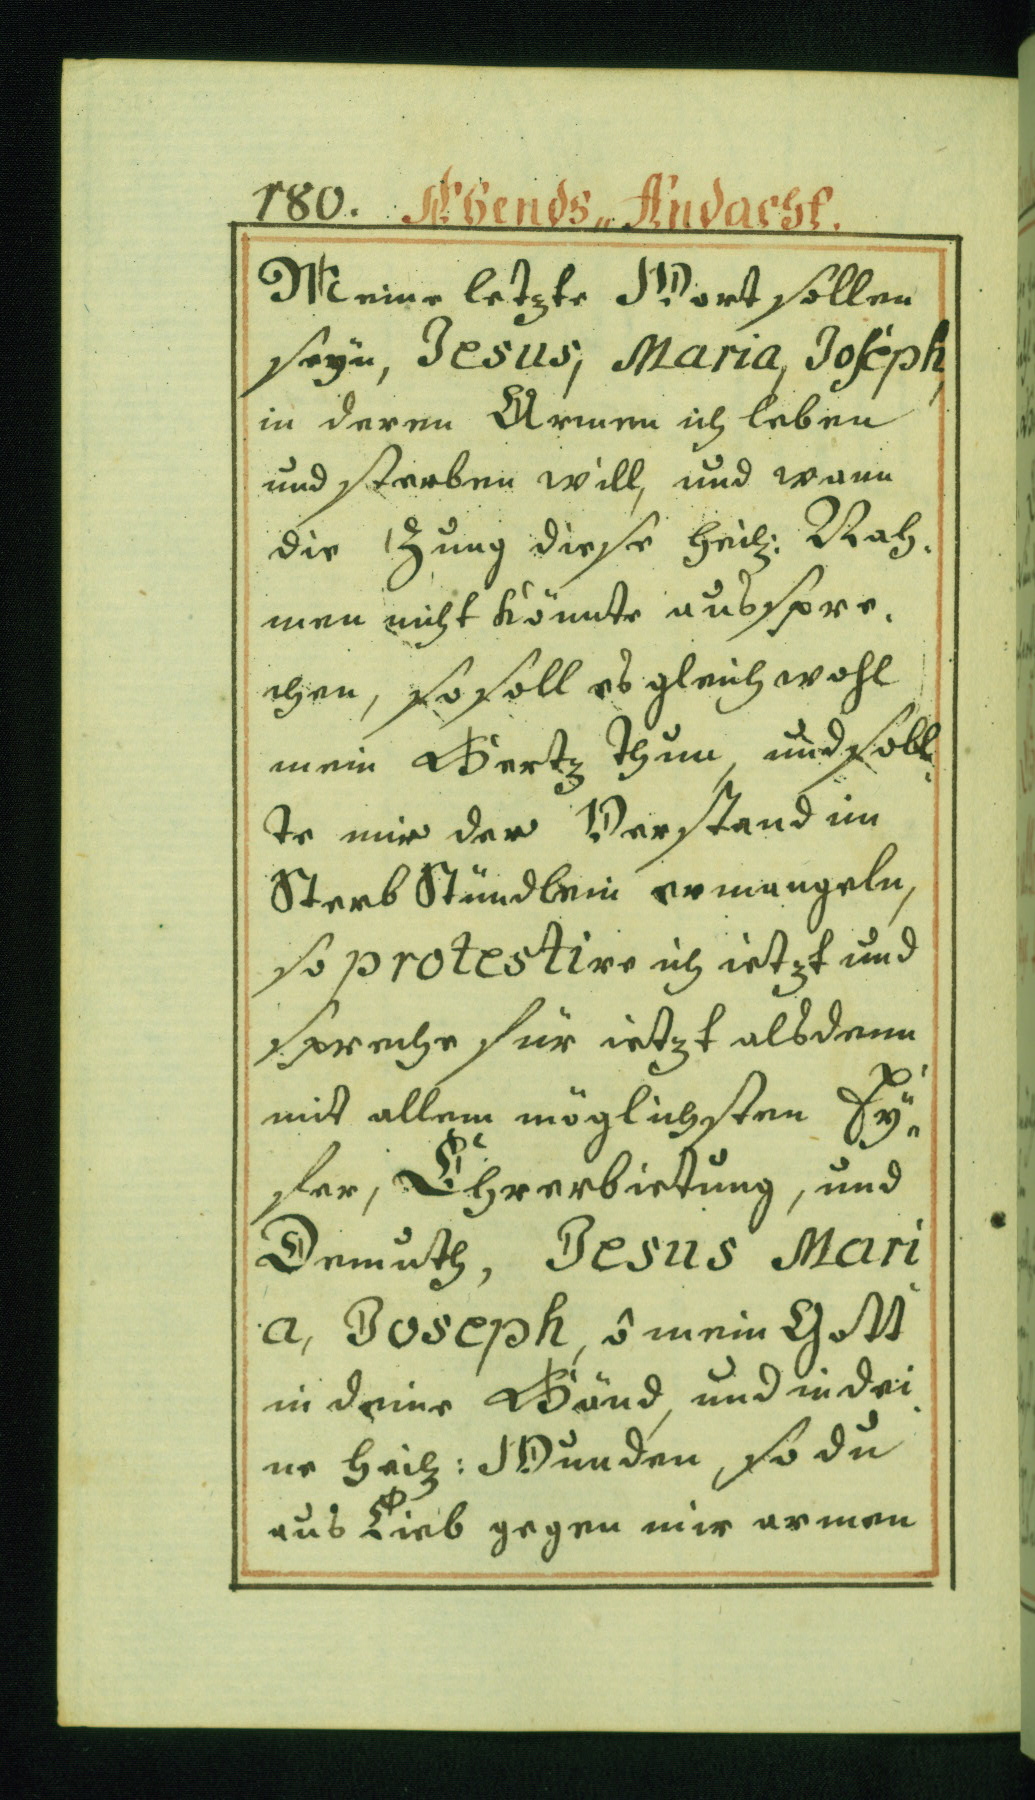 180. Abends„ Andacht.
Meine letzte Wort sollen
seÿn, Jesus, Maria, Joseph,
in deren Armen ich leben
und sterben will, und wann
die Zung diese heilg: Nah-
men nicht könnte ausspre-
chen, so soll es gleich wohl
mein Hertz thun, und soll„
te mir der Verstand im
Sterb Stündlein ermangeln,
so protestire ich ietzt und
spreche für ietzt alsdenn
mit allem möglichsten Eÿ„
fer, Ehrerbietung, und
Demuth, Jesus Mari„
a, Joseph, ô mein Gott
in deine Händ, und in dei„
ne heilg: Wunden, so du
aus Lieb gegen mir armen